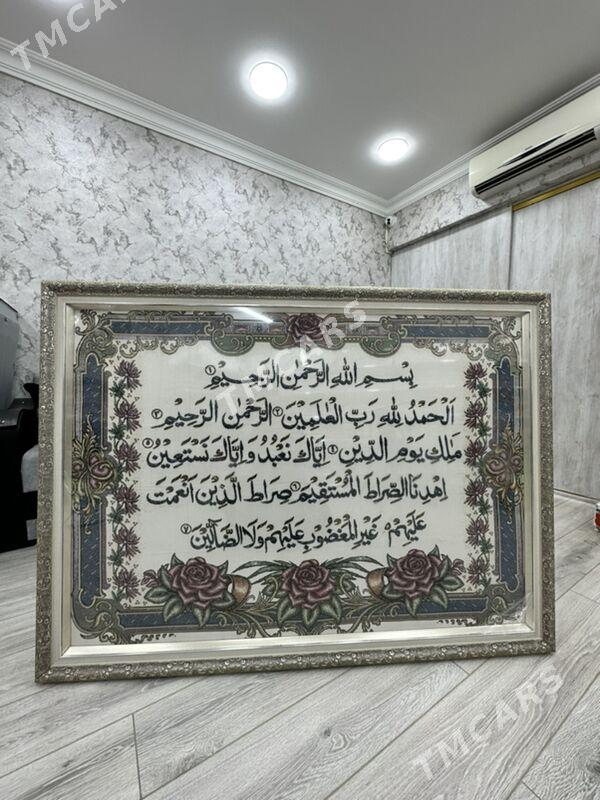 TMCARS
TMCARS
بِسْمِ اللهِ الرَّحْمٰنِ الرَّحِيْمِ ١
اَلْحَمْدُ لِلهِ رَبِّ الْعٰلَمِيْنَ ٢ الرَّحْمٰنِ الرَّحِيْمِ ٣
مٰلِكِ يَوْمِ الدِّيْنِ ٤ اِيَّاكَ نَعْبُدُ وَاِيَّاكَ نَسْتَعِيْنُ ٥
اِهْدِنَا الصِّرَاطَ الْمُسْتَقِيْمَ ٦ صِرَاطَ الَّذِيْنَ اَنْعَمْتَ
عَلَيْهِمْ غَيْرِ الْمَغْضُوْبِ عَلَيْهِمْ وَلَا الضَّالِّيْنَ ٧
TMCARS
TMCARS
TMCARS